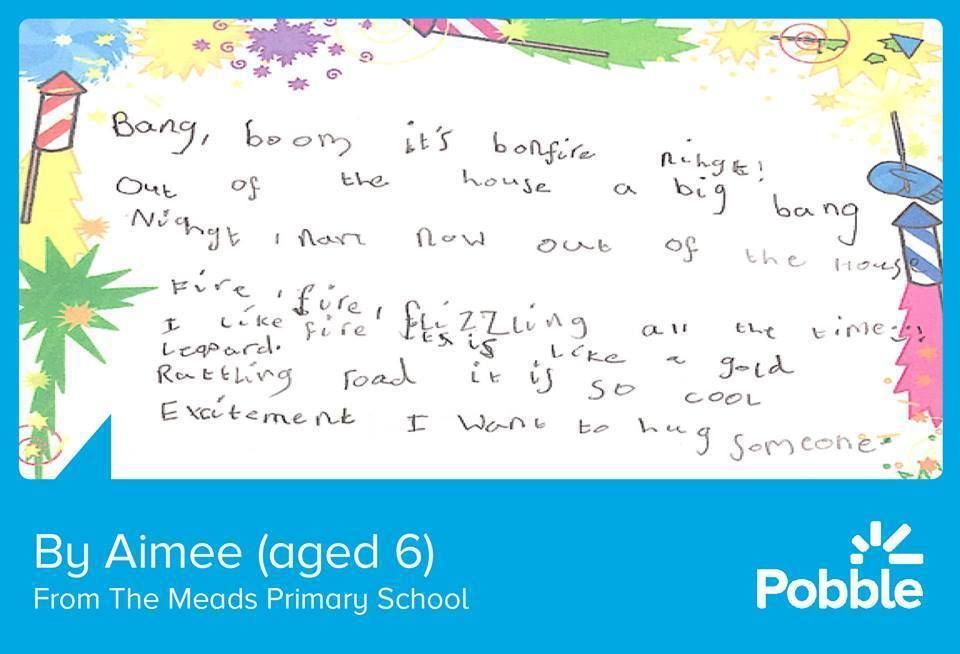 Bang, boom it's bonfire nihgt!
Out of the house a big bang
Nihgt, I ran now out of the House
Fire, fire, flizzling all the time!!!
I like fire its is like a gold
Leopard.
Rattling road it is so cool
Excitement I want to hug someone
By Aimee (aged 6)
From The Meads Primary School
Pobble